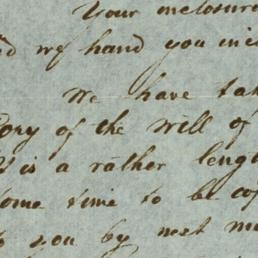 Your enclosure
we hand you
We have
Copy of the will of
is a rather
some time to be
to you by next